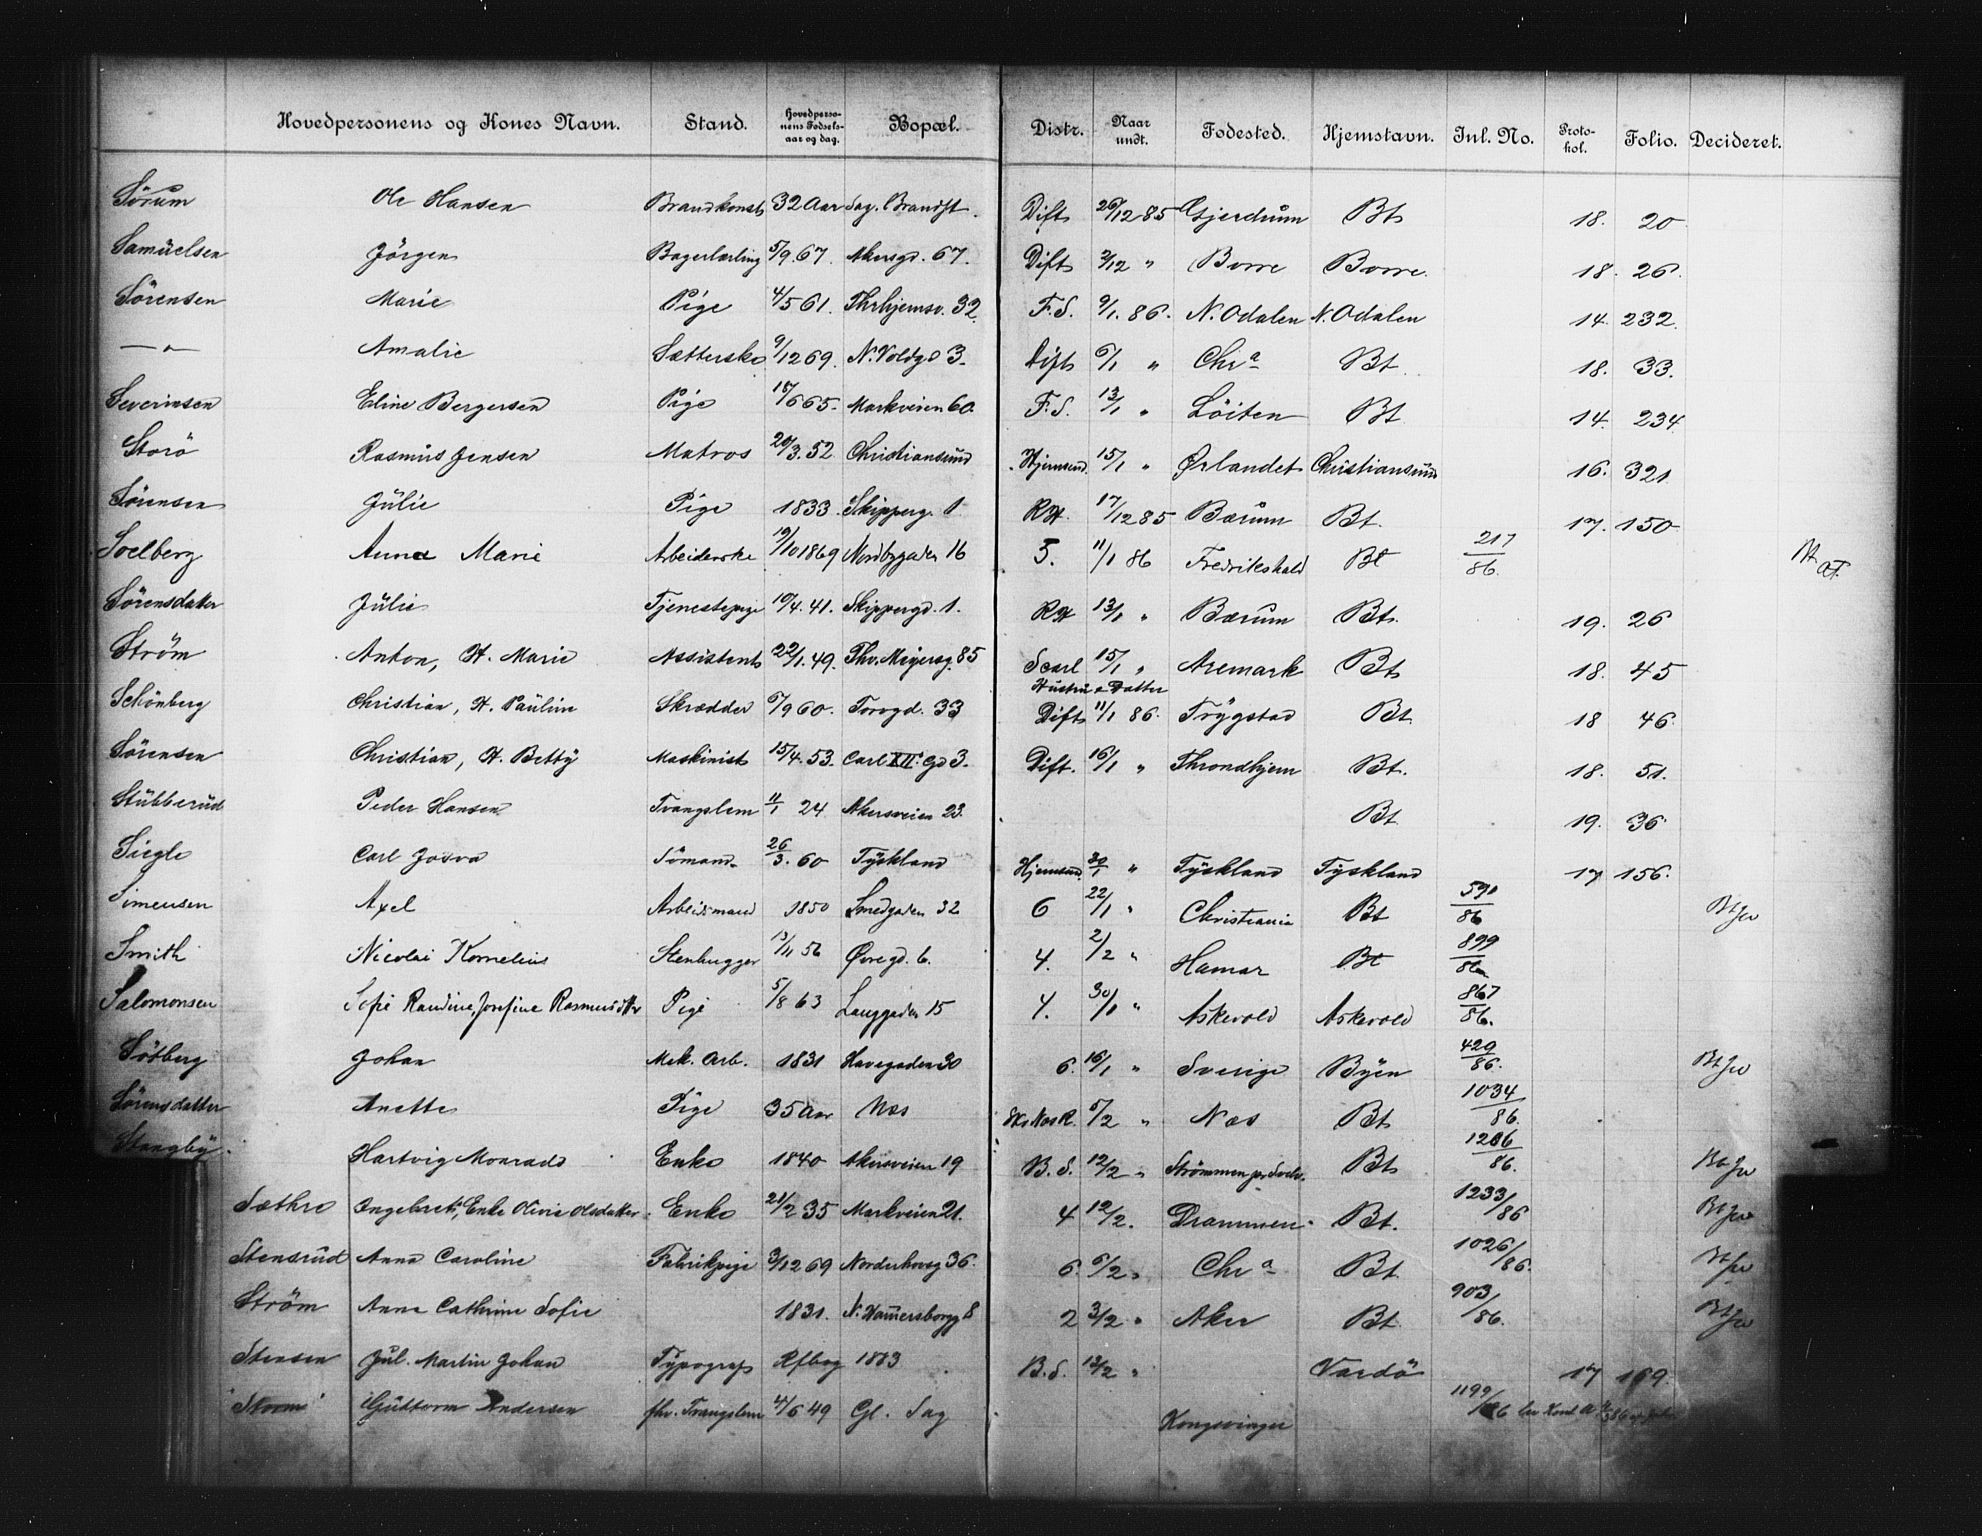 Hovedpersonens og Kones Navn. Stand. Hovedperso-nens Fødsels-aar og dag. Bopæl. Distr. Naar undt. Fødested. Hjemstavn. Inl. No. Proto-kol. Folio. Decideret.
Sörum Ole Hansen Brandkonst 32 Aar Sag. Brandst. Dift 20/12 85 Gjerdrum Bt 18. 20
Samüelsen Jörgen Bagerlærling 5/9. 67. Akersgd. 67. Dift 2/12 " Borre Borre. 18. 26.
Sörensen Marie Pige 4/5 61. Thrhjemsv. 32. F.S. 9/1. 86. N. Odalen N. Odalen 14. 232.
—"— Amalie Sætterske 9/12 69. N. Voldgd 3. Dift 6/1 " Chra Bt. 18. 33.
Severinsen Eline Bergersen Pige 15/6 65. Markveien 60. F.S. 13/1 " Löiten Bt 14. 234
Storö Rasmus Jensen Matros 20/3. 52 Christiansund Hjemsend. 15/1 " Ørlandet Christiansund 16. 321.
Sörensen Jülie Pige 1833. Skipperg. 1 RH. 17/12 85 Bærum Bt. 17. 150
Soelberg Anna Marie Arbeiderske 19/10 1869 Nordbygaden 16 5. 11/1 86 Fredrikshald Bt 217/86. Bt
Sörensdatter Jülie Tjenestepige 10/4. 41. Skippergd. 1. RH 13/1 " Bærum Bt. 19. 26
Ström Anton, H. Marie Assistent 22/1. 49. Thv. Meyersg. 85 Scarl 15/1 " Aremark Bt 18. 45
Hustru & Datter
Schönberg Christian, H. Pauline Skrædder 6/9 60. Torvgd. 33 Dift 11/1 86. Trygstad Bt. 18 46
Sörensen Christian, H. Betty Maskinist 15/4. 53. Carl XII. Gd 3. Dift. 16/1 " Throndhjem Bt. 18. 51.
Stübberud Peder Hansen Tvangslem 11/1 24 Akersveien 23. Bt 19. 36
Siegle Carl Josva Sömand. 26/3. 60 Tyskland Hjemsend. 30/1 " Tyskland Tyskland 17 156.
Simensen Axel Arbeidsmand 1850 Smedgaden 32 6 22/1 " Christiania Bt 590/86 Bt
Smith Nicolai Kornelius Stenhugger 13/11 56 Øvregd. 6. 4. 2/2 " Hamar Bt 899/86
Salomonsen Sofie Randine, Josefine Rasmusdtr Pige 5/8 63 Langgaden 15 4. 30/1 " Askevold Askevold 867/86.
Sötberg Johan Mek. Arb. 1831 Havegaden 30 6. 16/1 " Sverige Byen 429/86. Bt
Sörensdatter Anette Pige 35 Aar Næs 5/2 " Næs Bt 1034/86.
Stangby. Hartvig Monrads Enke 1840 Akersveien 19 B.S. 12/2 " Strömmen pr Bt 1286/86. Bt
Sæthre Ingebret., Enke Olivie Olsdatter. Enke 21/2 35 Markveien 21. 4 12/2. Drammen. Bt. 1233/86 Bt
Stensrud Anna Caroline Fabrikpige 3/12 69 Norderhovsg 36. 6. 6/2 " Chra Bt. 1026/86. Bt
Ström Anna Cathrine Sofie 1831. N. Hamersborgg 8 2 3/2 " Aker Bt. 903/86. Bt
Stensen Jül. Martin Johan Typograf 1883 B.S. 13/2 " Vardö 17 169.
Storm Guttorm Andersen fhv. Tvangslem 4/6 49 Gl. Sag Kongsvinger 1199/86